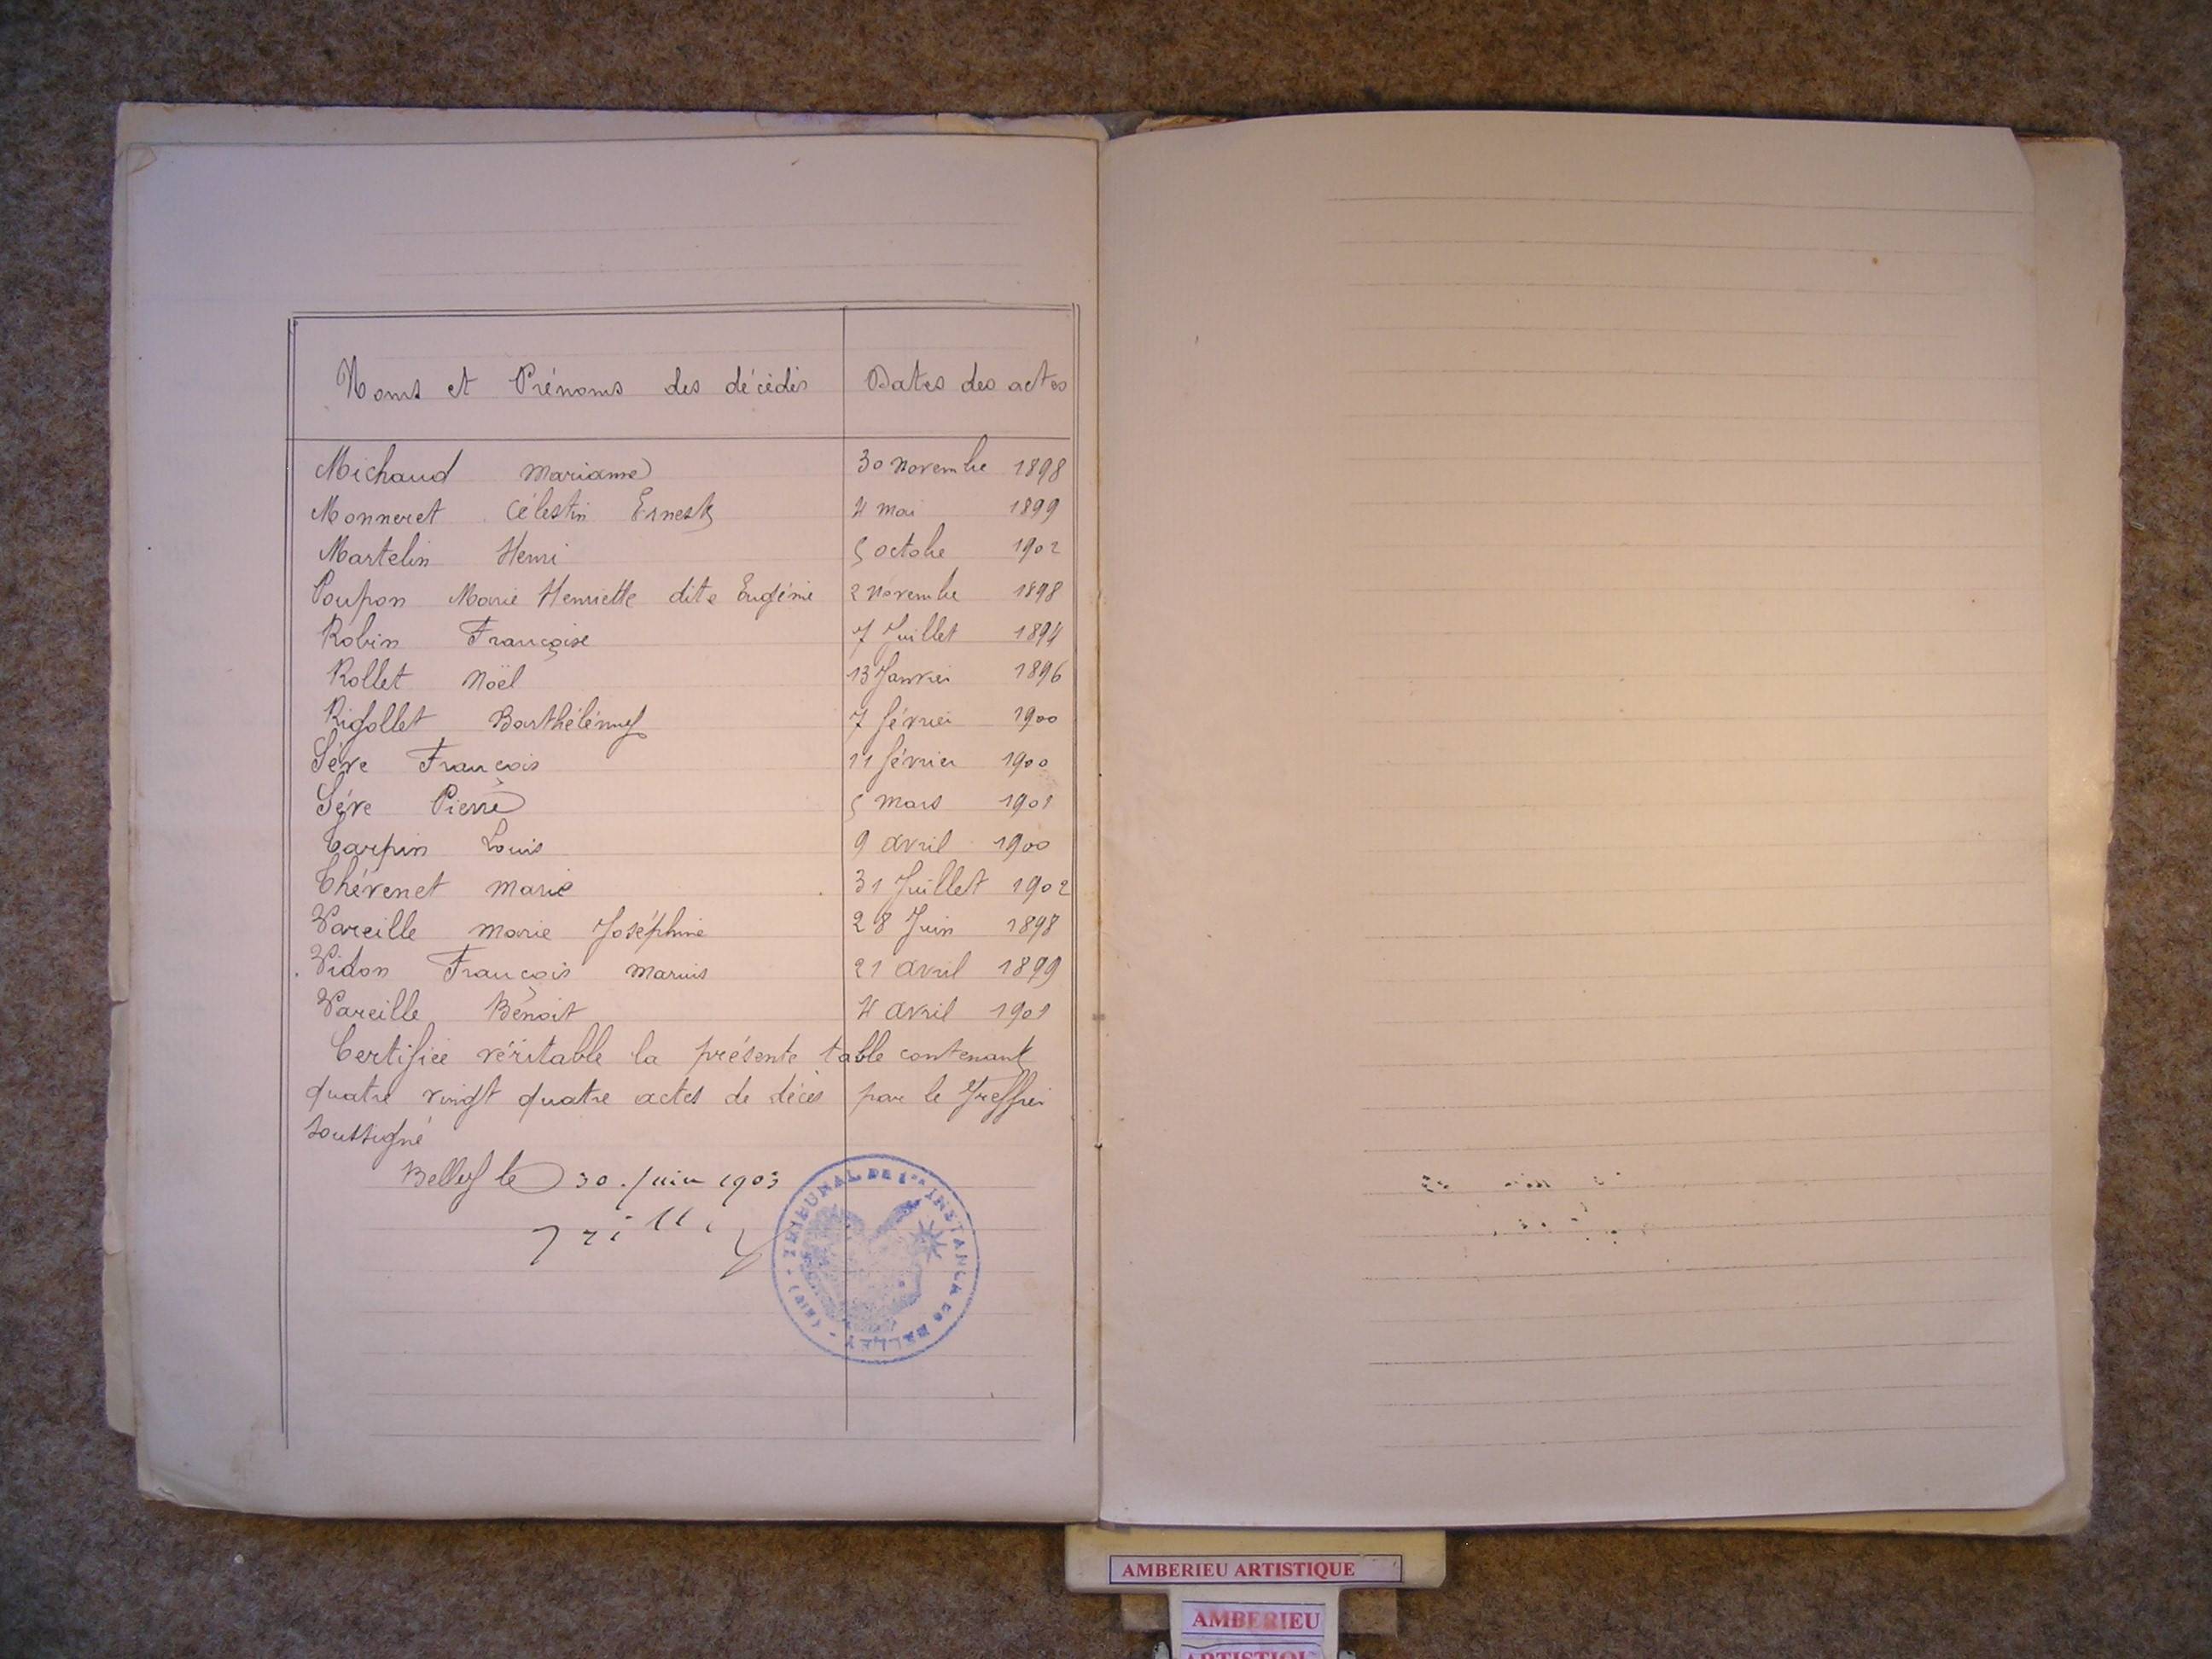 Noms et Prénoms des décédés Dates des actes
Michaud Marianne 30 Novembre 1898
Monneret Célestin Ernest 4 mai 1899
Martelin Henri 5 octobre 1902
Poupon Marie Henriette dite Eugénie 2 Novembre 1898
Robin Françoise 7 Juillet 1894
Rollet Noël 13 Janvier 1896
Rigollet Barthélémy 7 février 1900
Sève François 11 février 1900
Sève Pierre 5 mars 1901
Tarpin Louis 9 avril 1900
Thévenet Marie 31 Juillet 1902
Vareille Marie Joséphine 28 Juin 1898
Vidon François Marius 21 avril 1899
Vareille Benoit 4 avril 1901
Certifiée véritable la présente table contenant
quatre vingt quatre actes de décès par le Greffier
soussigné
Belley le 30 Juin 1903
TRIBUNAL DE 1re INSTANCE DE BELLEY - (AIN) -
AMBERIEU ARTISTIQUE
AMBERIEU
ARTISTIQU